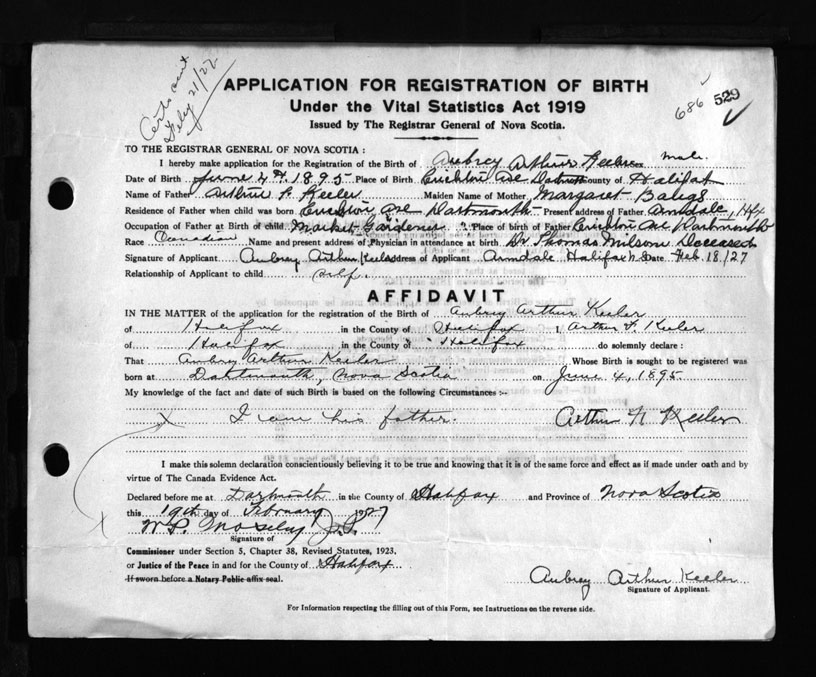 Feby 21/27
APPLICATION FOR REGISTRATION OF BIRTH
Under the Vital Statistics Act 1919
Issued by The Registrar General of Nova Scotia.
686 529
TO THE REGISTRAR GENERAL OF NOVA SCOTIA :
I hereby make application for the Registration of the Birth of Aubrey Arthur Keeler Sex Male
Date of Birth June 4th 1895 Place of Birth Crichton Ave County of Halifax
Name of Father Arthur F Keeler Maiden Name of Mother Margaret
Residence of Father when child was born Crichton Ave Dartmouth Present address of Father Armdale, Hfx
Occupation of Father at Birth of Child Market Gardener Place of birth of Father Crichton Ave Dartmouth
Race Canadian Name and present address of Physician in attendance at birth Dr Thomas Milson Deceased
Signature of Applicant Aubrey Arthur Keeler Address of Applicant Armdale, Halifax N.S. Date Feb. 18/27
Relationship of Applicant to child self.
AFFIDAVIT
IN THE MATTER of the application for the registration of the Birth of Aubrey Arthur Keeler
of Halifax in the County of Halifax I, Arthur F. Keeler
of Halifax in the County of Halifax do solemnly declare :
That Aubrey Arthur Keeler Whose Birth is sought to be registered was
born at Dartmouth, Nova Scotia on June 4, 1895
My knowledge of the fact and date of such Birth is based on the following Circumstances :-
X I am his father. Arthur Keeler
I make this solemn declaration conscientiously believing it to be true and knowing that it is of the same force and effect as if made under oath and by
virtue of The Canada Evidence Act.
Declared before me at Dartmouth in the County of Halifax and Province of Nova Scotia
this 19th day of February 1927
X W P. Moseley J.P.
Signature of
Commissioner under Section 5, Chapter 38, Revised Statutes, 1923.
or Justice of the Peace in and for the County of Halifax
If sworn before a Notary Public affix seal.
Aubrey Arthur Keeler
Signature of Applicant.
For Information respecting the filling out of this Form, see Instructions on the reverse side.